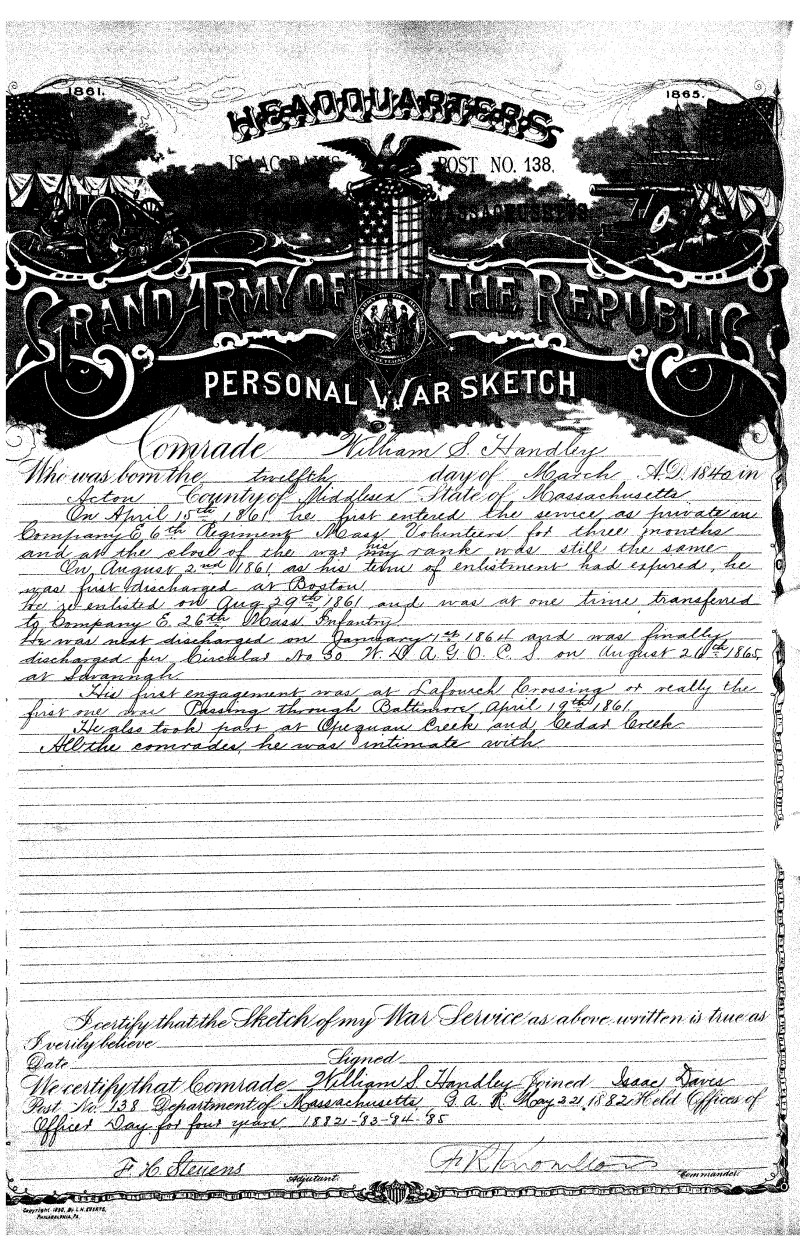 1861. 1865.
HEADQUARTERS
ISAAC DAVIS POST NO. 138.
MASSACHUSETTS
GRAND ARMY OF THE REPUBLIC
PERSONAL WAR SKETCH
Comrade William S. Handley
Who was born the twelfth day of March A.D. 1840 in
Acton County of Middlesex State of Massachusetts
On April 15th 1861 he first entered the service as private in
Company E 6th Regiment Mass. Volunteers for three months
and at the close of the war his my rank was still the same
On August 2nd 1861 as his time of enlistment had expired, he
was first discharged at Boston
he re enlisted on Aug 29th 1861 and was at one time transferred
to Company E. 26th Mass Infantry.
He was next discharged on January 1st 1864 and was finally
discharged per Circular No 30 W. D. A. G. O. C. S. on August 26th 1865,
at Savannah.
His first engagement was at Lafourch Crossing or really the
first one was Passing through Baltimore, April 19th 1861
He also took part at Opequan Creek and Cedar Creek.
All the comrades, he was intimate with
I certify that the Sketch of my War Service as above written is true as
I verily believe
Date Signed
We certify that Comrade William S. Handley Joined Isaac Davis
Post No. 138 Department of Massachusetts, G. A. R. May 22, 1882 Held Offices of
Officer Day for four years, 1882-'83-'84-'85
F. H. Stevens Adjutant. Commander.
Copyright 1890, By L.H. EVERTS,
PHILADELPHIA, PA.